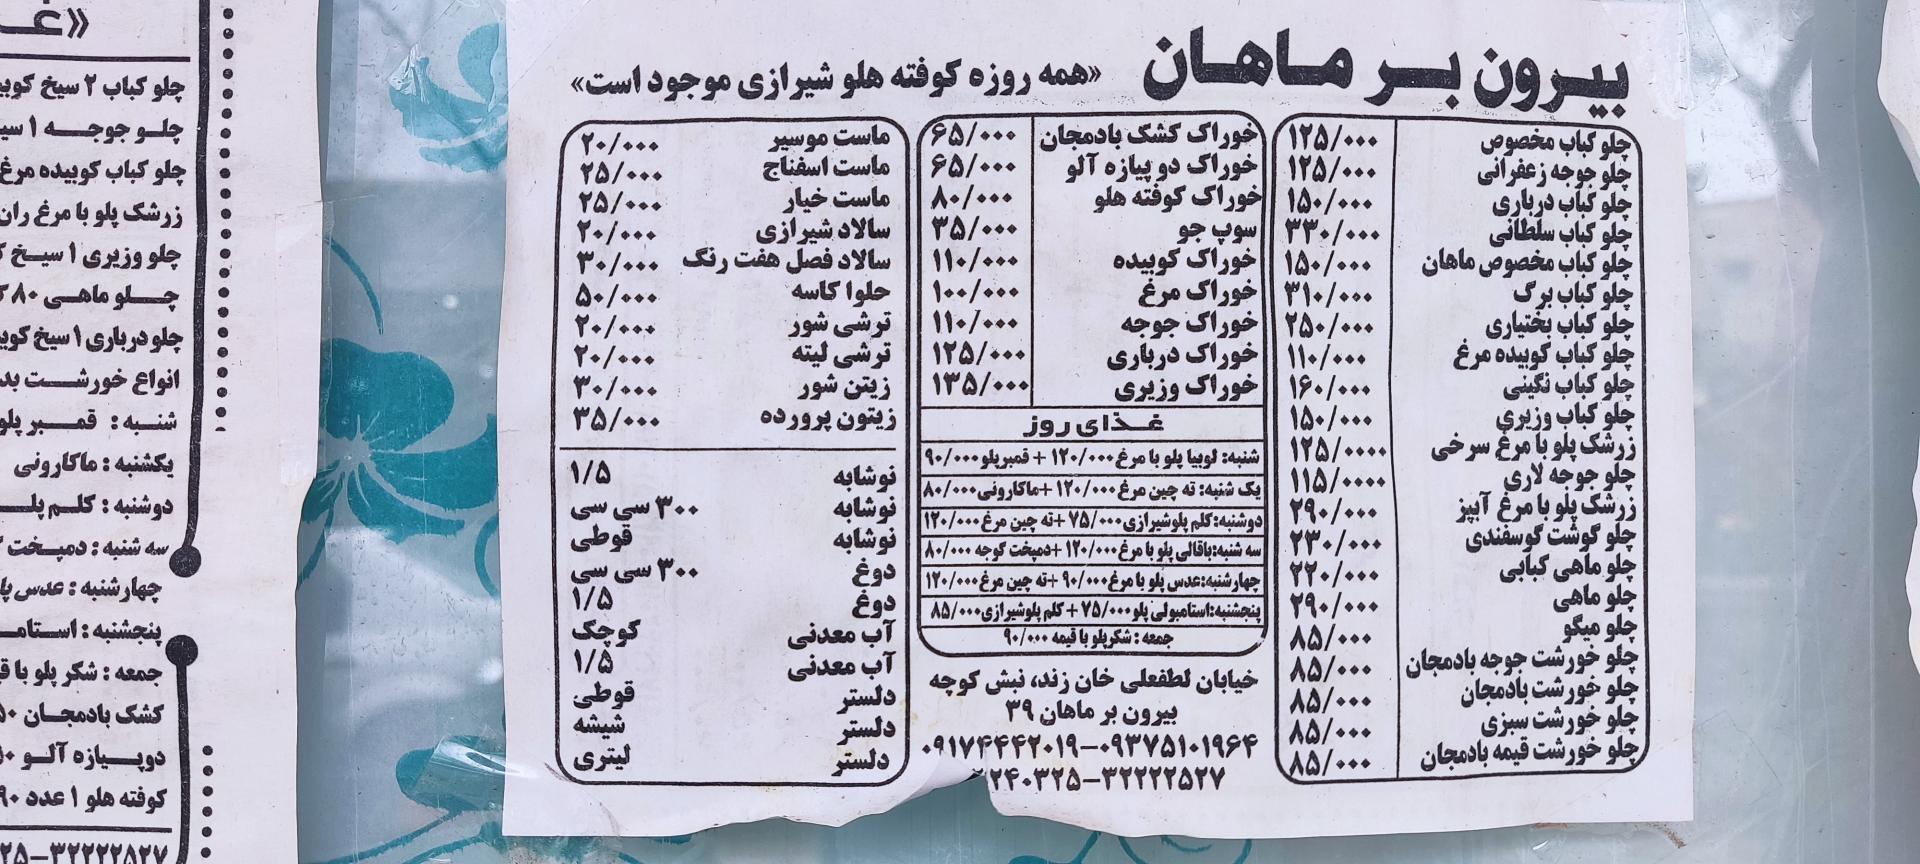 بیرون بر ماهان
«همه روزه کوفته هلو شیرازی موجود است»
چلو کباب مخصوص ۱۲۵/۰۰۰
چلو جوجه زعفرانی ۱۲۵/۰۰۰
چلو کباب درباری ۱۵۰/۰۰۰
چلو کباب سلطانی ۳۳۰/۰۰۰
چلو کباب مخصوص ماهان ۱۵۰/۰۰۰
چلو کباب برگ ۳۱۰/۰۰۰
چلو کباب بختیاری ۲۵۰/۰۰۰
چلو کباب کوبیده مرغ ۱۱۰/۰۰۰
چلو کباب نگینی ۱۶۰/۰۰۰
چلو کباب وزیری ۱۵۰/۰۰۰
زرشک پلو با مرغ سرخی ۱۲۵/۰۰۰۰
چلو جوجه لاری ۱۱۵/۰۰۰۰
زرشک پلو با مرغ آبپز ۲۹۰/۰۰۰
چلو گوشت گوسفندی ۲۳۰/۰۰۰
چلو ماهی کبابی ۲۲۰/۰۰۰
چلو ماهی ۲۹۰/۰۰۰
چلو میگو ۸۵/۰۰۰
چلو خورشت جوجه بادمجان ۸۵/۰۰۰
چلو خورشت بادمجان ۸۵/۰۰۰
چلو خورشت سبزی ۸۵/۰۰۰
چلو خورشت قیمه بادمجان ۸۵/۰۰۰
خوراک کشک بادمجان ۶۵/۰۰۰
خوراک دو پیازه آلو ۶۵/۰۰۰
خوراک کوفته هلو ۸۰/۰۰۰
سوپ جو ۳۵/۰۰۰
خوراک کوبیده ۱۱۰/۰۰۰
خوراک مرغ ۱۰۰/۰۰۰
خوراک جوجه ۱۱۰/۰۰۰
خوراک درباری ۱۲۵/۰۰۰
خوراک وزیری ۱۳۵/۰۰۰
غذای روز
شنبه: لوبیا پلو با مرغ ۱۲۰/۰۰۰ + قمبرپلو ۹۰/۰۰۰
یک شنبه: ته چین مرغ ۱۲۰/۰۰۰ +ماکارونی ۸۰/۰۰۰
دوشنبه:کلم پلوشیرازی ۷۵/۰۰۰ +ته چین مرغ ۱۲۰/۰۰۰
سه شنبه:باقالی پلو با مرغ ۱۲۰/۰۰۰ +دمپخت گوجه ۸۰/۰۰۰
چهارشنبه:عدس پلو با مرغ ۹۰/۰۰۰ +ته چین مرغ ۱۲۰/۰۰۰
پنجشنبه:استامبولی پلو ۷۵/۰۰۰ + کلم پلوشیرازی ۸۵/۰۰۰
جمعه : شکرپلو با قیمه ۹۰/۰۰۰
خیابان لطفعلی خان زند، نبش کوچه
۳۹ بیرون بر ماهان
۰۹۱۷۴۴۴۲۰۱۹-۰۹۳۷۵۱۰۱۹۶۴
۲۲۴۰۳۲۵-۳۲۲۲۲۵۲۷
ماست موسیر ۲۰/۰۰۰
ماست اسفناج ۲۵/۰۰۰
ماست خیار ۲۵/۰۰۰
سالاد شیرازی ۲۰/۰۰۰
سالاد فصل هفت رنگ ۳۰/۰۰۰
حلوا کاسه ۵۰/۰۰۰
ترشی شور ۲۰/۰۰۰
ترشی لیته ۲۰/۰۰۰
زیتن شور ۳۰/۰۰۰
زیتون پرورده ۳۵/۰۰۰
نوشابه ۱/۵
نوشابه ۳۰۰ سی سی
نوشابه قوطی
دوغ ۳۰۰ سی سی
دوغ ۱/۵
آب معدنی کوچک
آب معدنی ۱/۵
دلستر قوطی
دلستر شیشه
دلستر لیتری
چلو کباب ۲ سیخ
چلو جوجه ۱
چلو کباب کوبیده مرغ
زرشک پلو با مرغ ران
چلو وزیری ۱ سیخ
چلو ماهی ۸۰
چلو درباری ۱ سیخ
انواع خورشت
شنبه : قمبر پلو
یکشنبه : ماکارونی
دوشنبه : کلم
سه شنبه : دمپخت
چهارشنبه : عدس
پنجشنبه :
جمعه : شکر پلو با
کشک بادمجان
دوپیازه آلو
کوفته هلو ۱ عدد
۲۵-۳۲۲۲۲۵۲۷